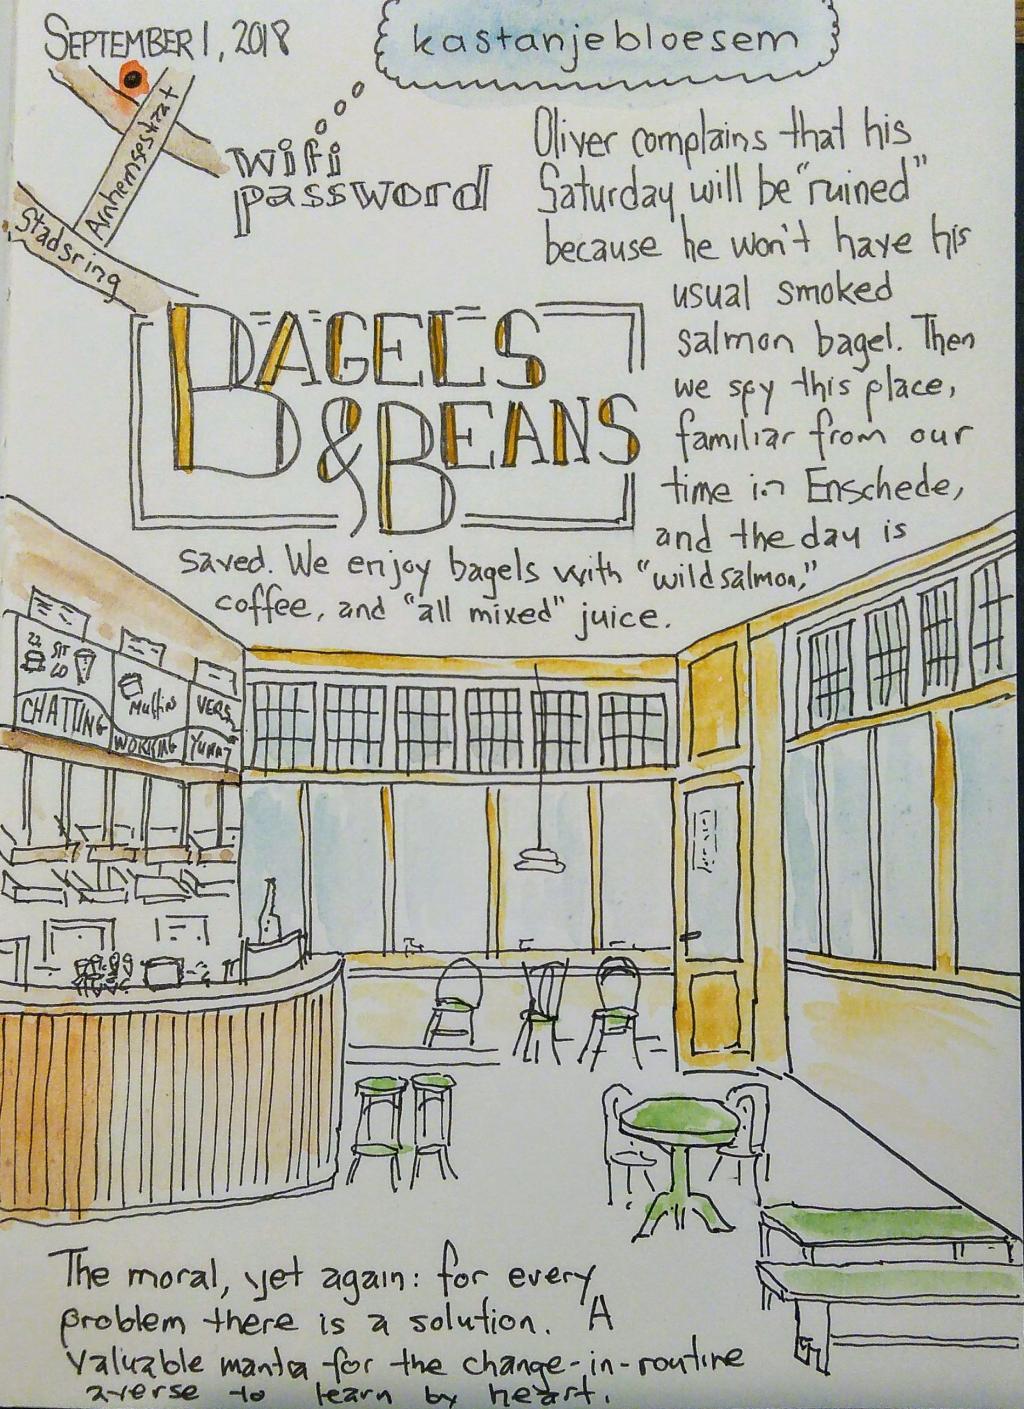 SEPTEMBER 1, 2018
kastanjebloesem
wifi
password
Arnhemsestraat
Stadsring
Oliver complains that his
Saturday will be "ruined"
because he won't have his
usual smoked
salmon bagel. Then
we spy this place,
familiar from our
time in Enschede,
and the day is
saved. We enjoy bagels with "wild salmon,"
coffee, and "all mixed" juice.
BAGELS
& BEANS
CHATTING
Muffins
WORKING
VERS
YUMMY
The moral, yet again: for every
problem there is a solution. A
valuable manta for the change-in-routine
averse to learn by heart.